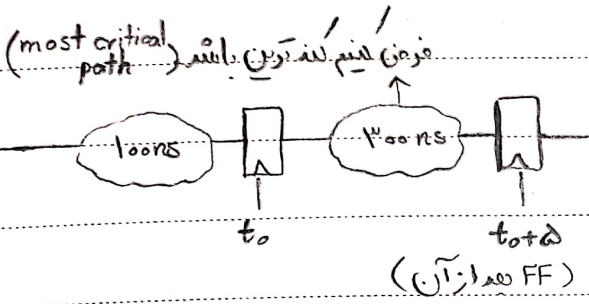 فرض کنیم کندترین باشد (most critical path)
100ns
۳00ns
t₀
t₀+۵
(FF بعد از آن)